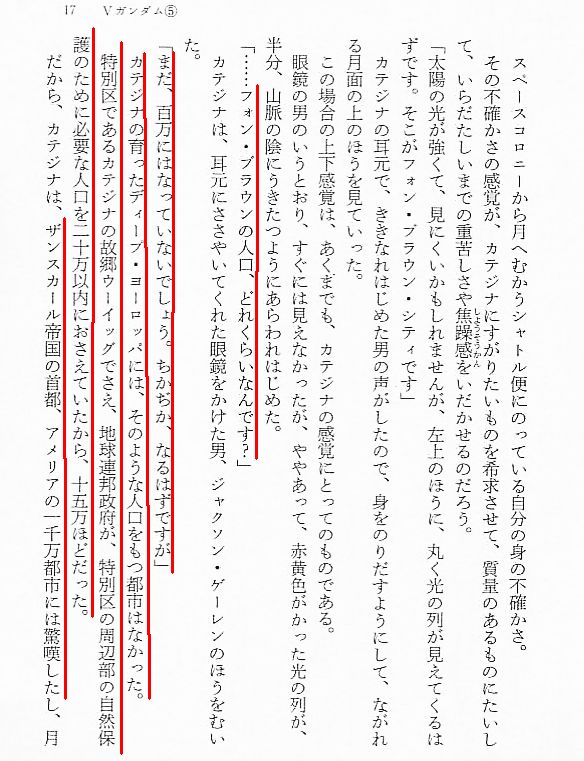 17　Ｖガンダム⑤
スペースコロニーから月へむかうシャトル便にのっている自分の身の不確かさ。
その不確かさの感覚が、カテジナにすがりたいものを希求させて、質量のあるものにたいし
て、いらだたしいまでの重苦しさや焦躁感をいだかせるのだろう。
しょうそうかん
「太陽の光が強くて、見にくいかもしれませんが、左上のほうに、丸く光の列が見えてくるは
ずです。そこがフォン・ブラウン・シティです」
カテジナの耳元で、ききなれはじめた男の声がしたので、身をのりだすようにして、ながれ
る月面の上のほうを見ていった。
この場合の上下感覚は、あくまでも、カテジナの感覚にとってのものである。
眼鏡の男のいうとおり、すぐには見えなかったが、ややあって、赤黄色がかった光の列が、
半分、山脈の陰にうきたつようにあらわれはじめた。
「……フォン・ブラウンの人口、どれくらいなんです？」
カテジナは、耳元にささやいてくれた眼鏡をかけた男、ジャクソン・ゲーレンのほうをむい
た。
「まだ、百万にはなっていないでしょう。ちかぢか、なるはずですが」
カテジナの育ったディープ・ヨーロッパには、そのような人口をもつ都市はなかった。
特別区であるカテジナの故郷ウーイッグでさえ、地球連邦政府が、特別区の周辺部の自然保
護のために必要な人口を二十万以内におさえていたから、十五万ほどだった。
だから、カテジナは、ザンスカール帝国の首都、アメリアの一千万都市には驚嘆したし、月